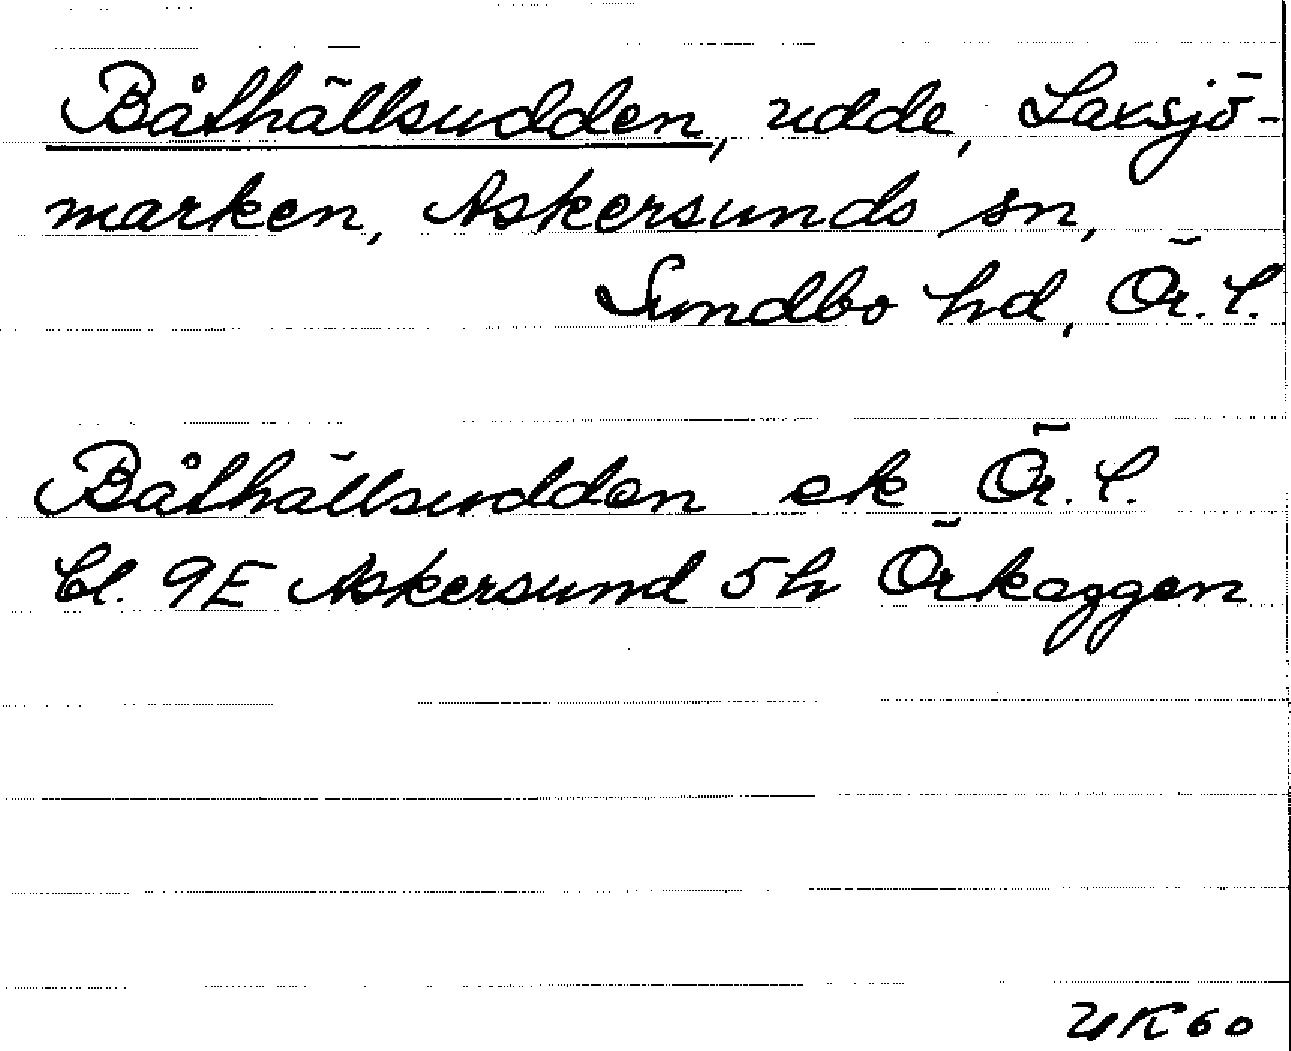 Båthällsudden, udde, Laxsjö-
marken, Askersunds sn,
Sundbo hd, Ör. l.
Båthällsudden ek Ör. l.
Bl. 9E Askersund 5h Örkaggen
UK60